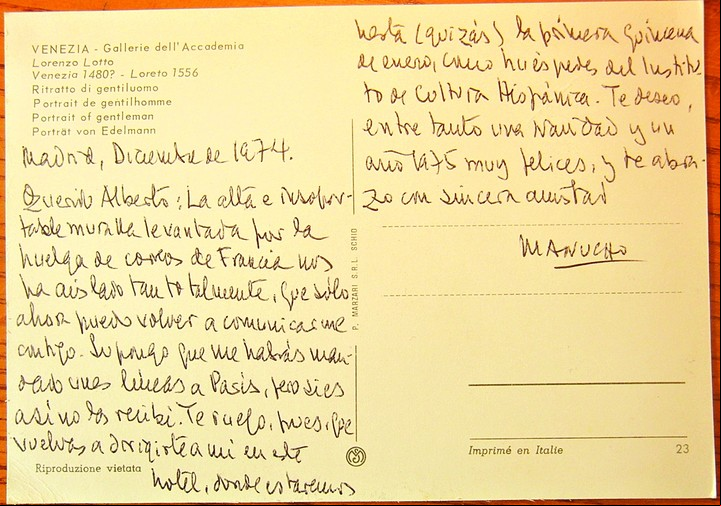 VENEZIA - Gallerie dell'Accademia
Lorenzo Lotto
Venezia 1480? - Loreto 1556
Ritratto di gentiluomo
Portrait de gentilhomme
Portrait of gentleman
Porträt von Edelmann
Madrid, Diciembre de 1974.
Querido Alberto: La alta e insopor-
table muralla levantada por la
huelga de correos de Francia nos
ha aislado tan totalmente, que sólo
ahora puedo volver a comunicarme
contigo. Supongo que me habrás man-
dado unas líneas a París, pero si es
así no las recibí. Te ruego, pues, que
vuelvas a dirigirte a mí en este
hotel, donde estaremos
hasta (quizás) la primera quincena
de enero, como huéspedes del Institu-
to de Cultura Hispánica. Te deseo,
entre tanto una Navidad y un
año 1975 muy felices, y te abra-
zo con sincera amistad
MANUCHO
P. MARZARI S.R.L. SCHIO
Riproduzione vietata
Imprimé en Italie
23